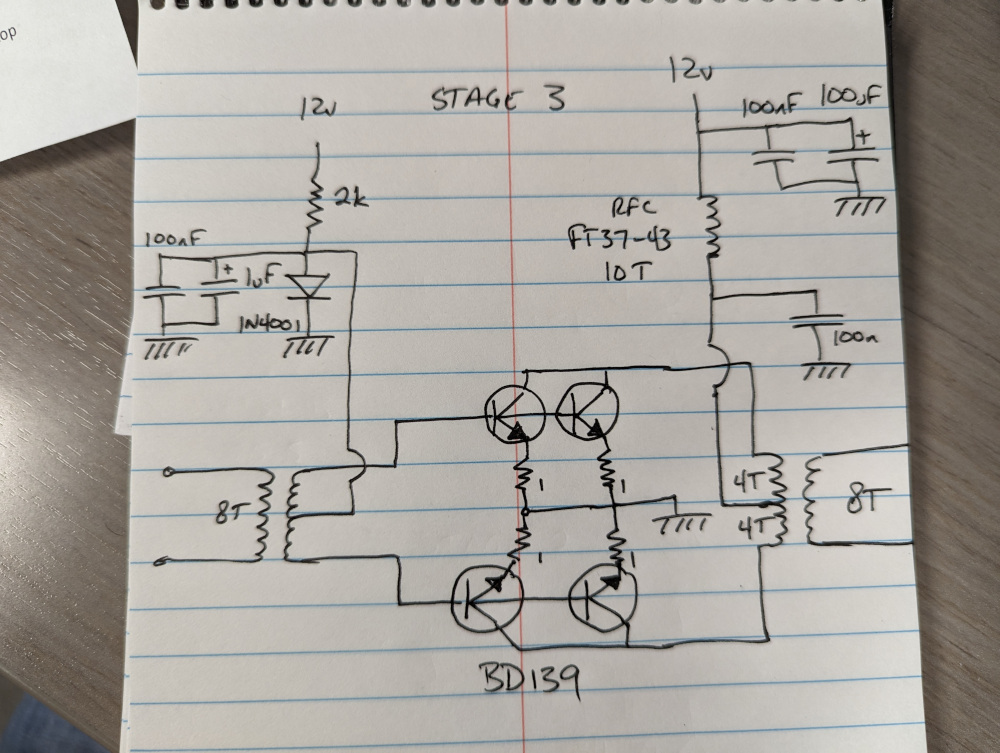 op
STAGE 3
12v
12v
100nF
100uF
+
2k
RFC
FT37-43
10T
100nF
+
1uF
1N4001
100n
1
1
4T
8T
8T
4T
1
1
BD139